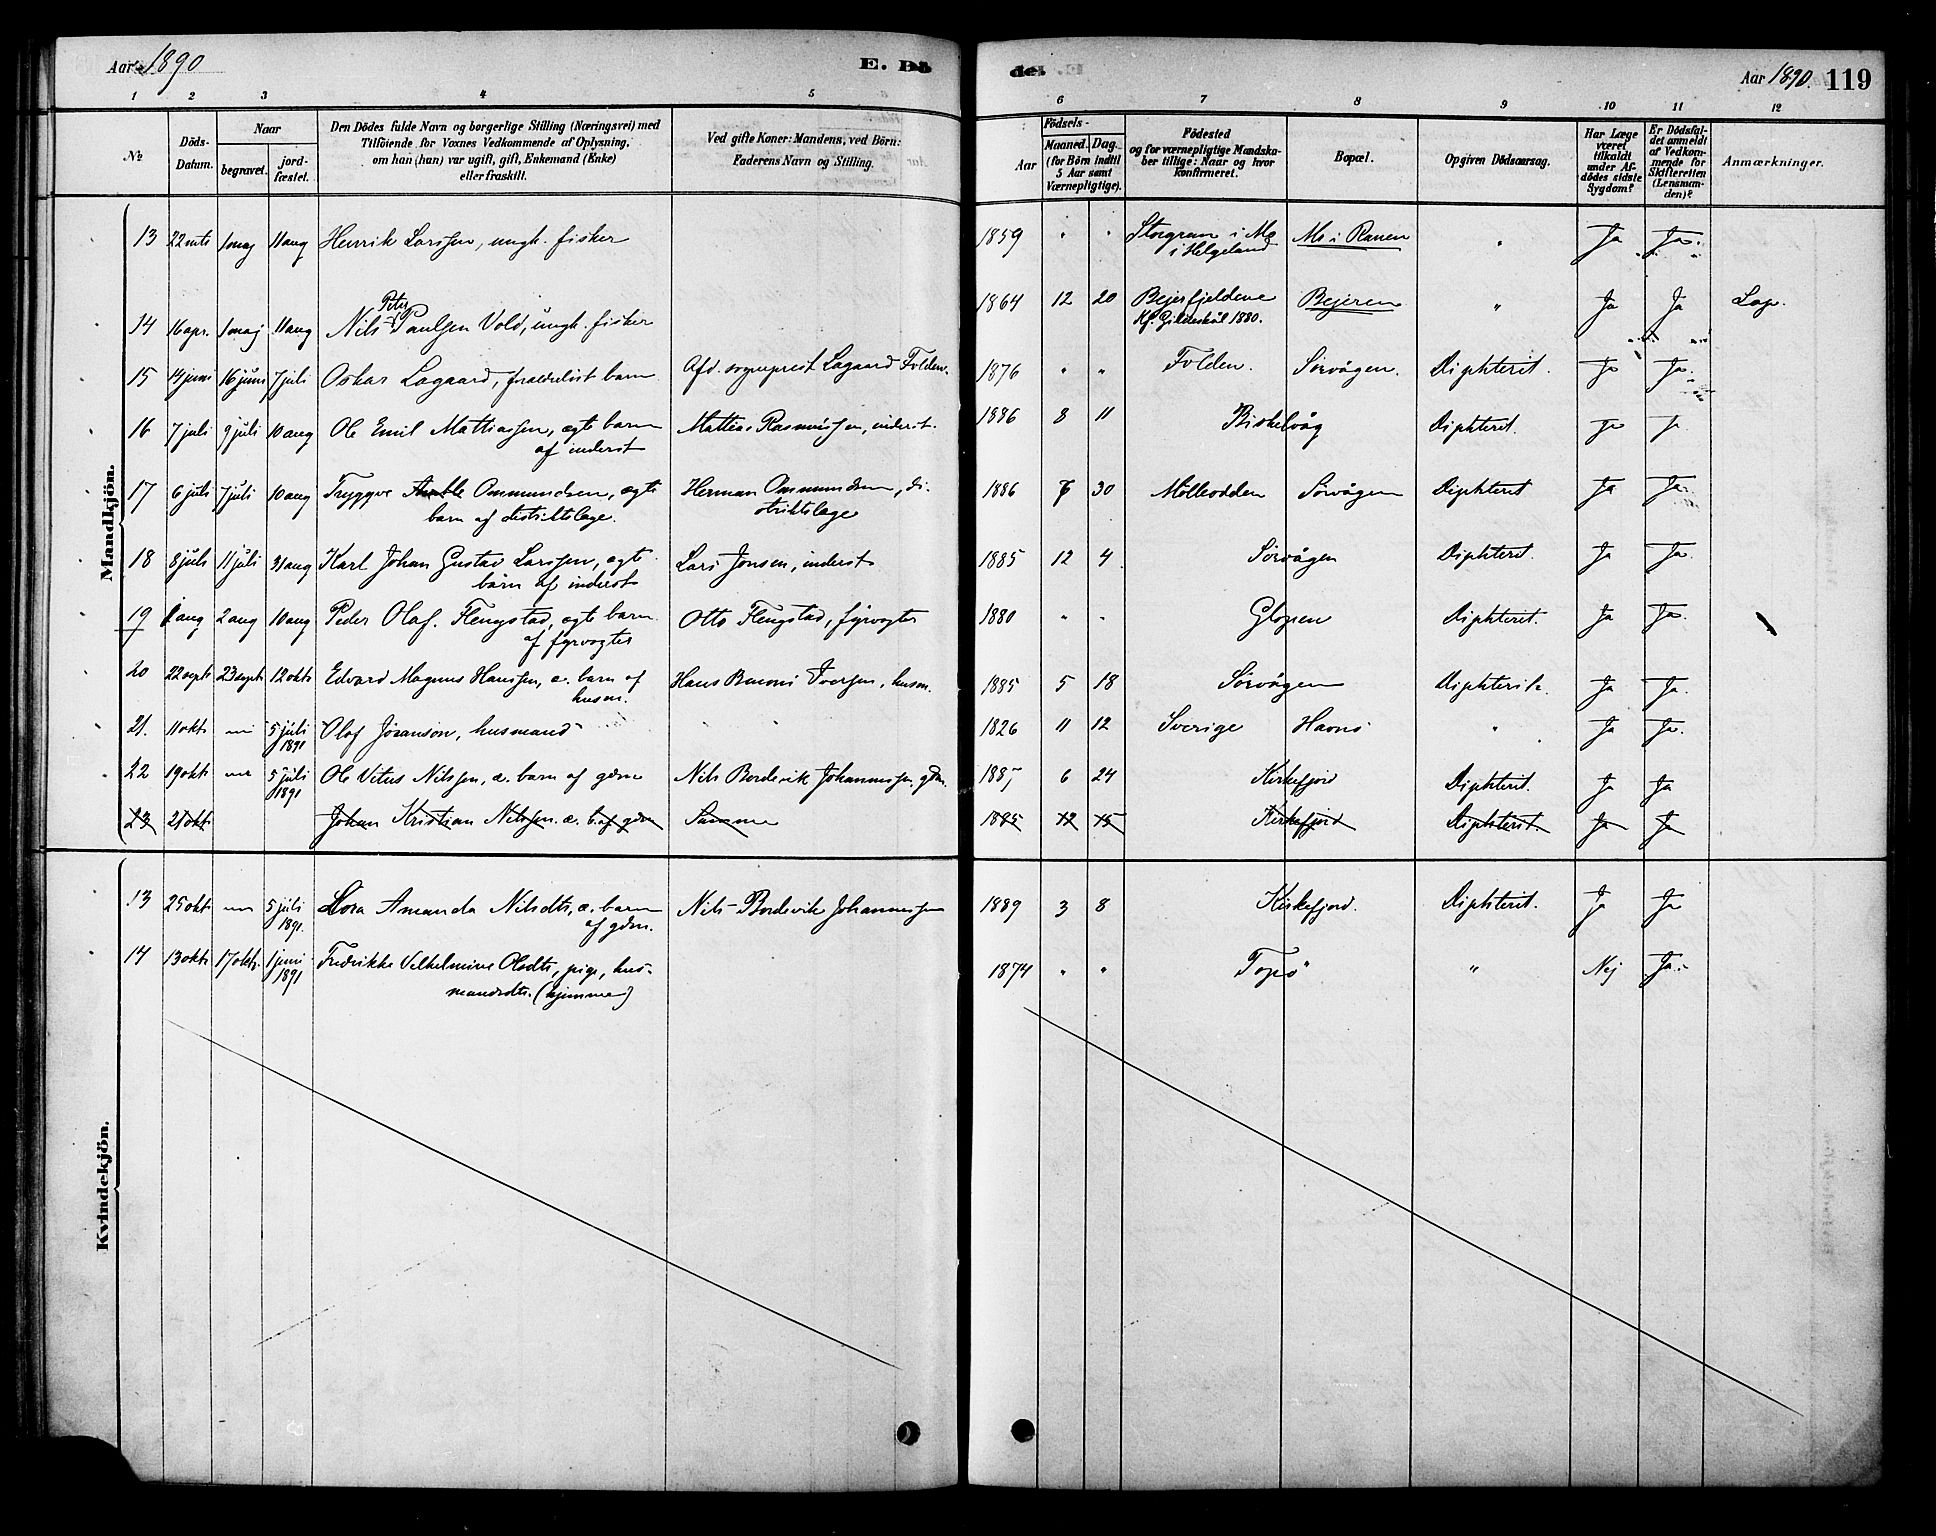 Aar 1890
E. Dö
de.
Aar 1890. 119
1 2 3 4 5 6 7 8 9 10 11 12
№
Döds-Datum.
Naar
begravet.
jord-fæstet.
Den Dödes fulde Navn og borgerlige Stilling (Næringsvei) med
Tilföiende for Voxnes Vedkommende af Oplysning,
om han (hun) var ugift, gift, Enkemand (Enke)
eller fraskilt.
Ved gifte Koner: Mandens, ved Börn:
Faderens Navn og Stilling.
Födsels-
Aar
Maaned. Dag.
(for Börn indtil
5 Aar samt
Værnepligtige).
Födested
og for værnepligtige Mandska-
ber tillige: Naar og hvor
konfirmeret.
Bopæl.
Opgiven Dödsaarsag.
Har Læge
været
tilkaldt
under Af-
dödes sidste
Sygdom?
Er Dödsfal-
det anmeldt
af Vedkom-
mende for
Skifteretten
(Lensman-
den)?
Anmærkninger.
Mandkjön.
13 22 mts 1 maj 11 aug Henrik Larssen, ungk. fisker 1859 " " i Mo i Helgeland Mo i Ranen " Ja Ja.
14 16 apr. 1 maj 11 aug Nils Peter Paulsen Vold, ungk. fisker 1864 12 20 Bejerfjeldene Kf. Gildeskål 1880. Bejeren " Ja Ja Lap.
15 14 juni 16 juni 7 juli Oskar Lagaard, forældreløst barn Afd. sogneprest Lagaard Folden. 1876 " " Folden. Sörvågen. Diphterit. Ja Ja.
16 7 juli 9 juli 10 aug Ole Emil Mattiassen, ægte barn af inderst Mattias Rasmussen, inderst. 1886 8 11 Diphterit. Ja Ja
17 6 juli 7 juli 10 aug Tryggve Ommundsen, ægte barn af distriktslæge. Herman Ommundsen, di-striktslæge 1886 7 30 Mölleodden Sörvågen Diphterit Ja Ja.
18 8 juli 11 juli 31 aug Karl Johan Gustav Larssen, ægte barn af inderst Lars Jonsen, inderst 1885 12 4 Sörvågen Diphterit. Ja Ja.
19 1 aug 2 aug 10 aug Peder Olaf. Flengstad, ægte barn af fyrvogter Otto Flengstad, fyrvogter 1880 " " Glopen Diphterit. Ja Ja.
20 22 sept 23 sept 12 okt Edvard Magnus Hanssen, æ. barn af husm. Hans Iversen, husm. 1885 5 18 Sörvågen Diphterit. Ja Ja.
21. 11 okt. 5 juli 1891 Olof Jöranson, husmand 1826 11 12 Sverige Havnö " Ja Ja.
22 19 okt 5 juli 1891 Ole Vitus Nilssen, æ. barn af gdm Nils Bordevik Johannessen, gdm. 1887 6 24 Kirkefjord Diphterit. Ja Ja
23 21 okt Johan Kristian Nilssen. æ. b. af gdm Samme 1885 12 15 Kirkefjord Diphterit. Ja Ja
Kvindekjön.
13 25 okt 5 juli 1891. Hora Amanda Nilsdtr, æ. barn af gdm. Nils Bordevik Johannessen 1889 3 8 Kirkefjord. Diphterit. Ja Ja
14 13 okt 17 okt. 1 juni 1891 Fredrikke Vilhelmine Olsdtr, pige, hus-mandsdtr. (hjemme) 1874 " " Topö " Nej Ja.